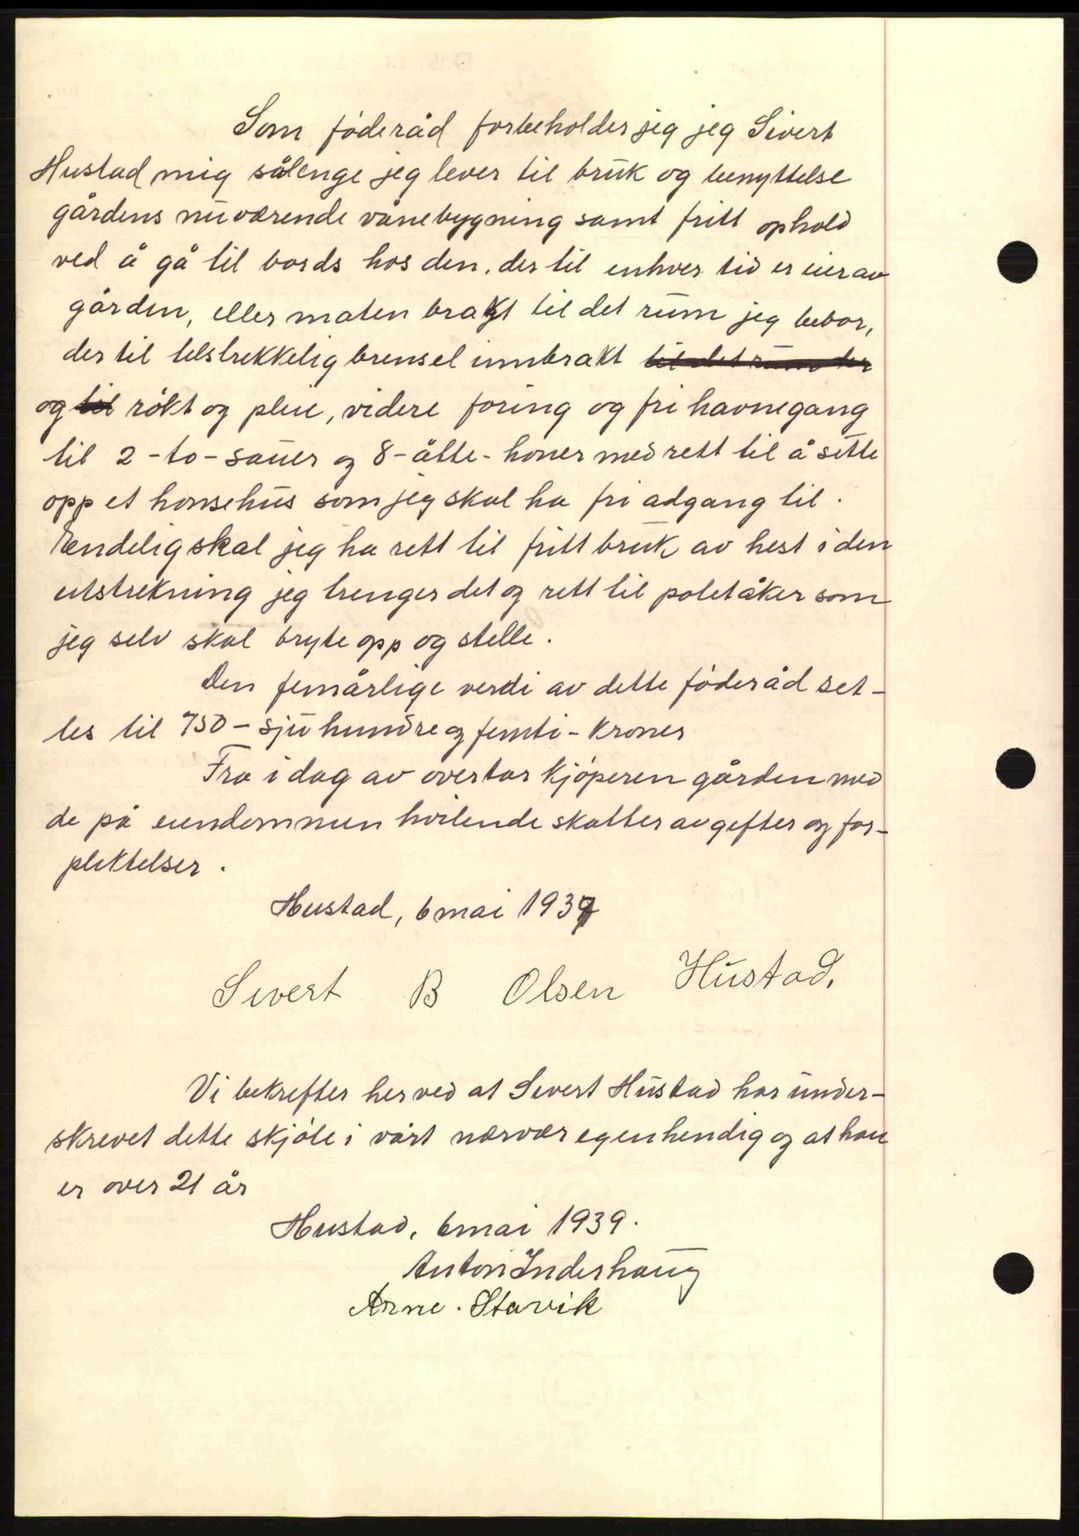 Som føderåd forbeholder jeg jeg Sivert
Hustad mig sålenge jeg lever til bruk og benyttelse
gårdens nuværende vånebygning samt fritt ophold
ved å gå til bords hos den, der til enhver tid er eier av
gården, eller maten brakt til det rum jeg bebor,
der til tilstrekkelig brensel innbrakt til det rum der
og til røkt og pleie, videre foring og fri havnegang
til 2 - to - sauer og 8 - åtte - høner med rett til å sette
opp et hønsehus som jeg skal ha fri adgang til.
Endelig skal jeg ha rett til fritt bruk av hest i den
utstrekning jeg trenger det og rett til potetåker som
jeg selv skal bryte opp og stelle.
Den femårlige verdi av dette føderåd set-
tes til 750 - sjuhundre og femti - kroner
Fra i dag av overtar kjøperen gården med
de på eiendommen hvilende skatter avgifter og for-
pliktelser.
Hustad, 6 mai 1939
Sivert B Olsen Hustad.
Vi bekrefter herved at Sivert Hustad har under-
skrevet dette skjøte i vårt nærvær egenhendig og at han
er over 21 år
Hustad, 6 mai 1939.
Anton Inderhaug
Arne. Stavik